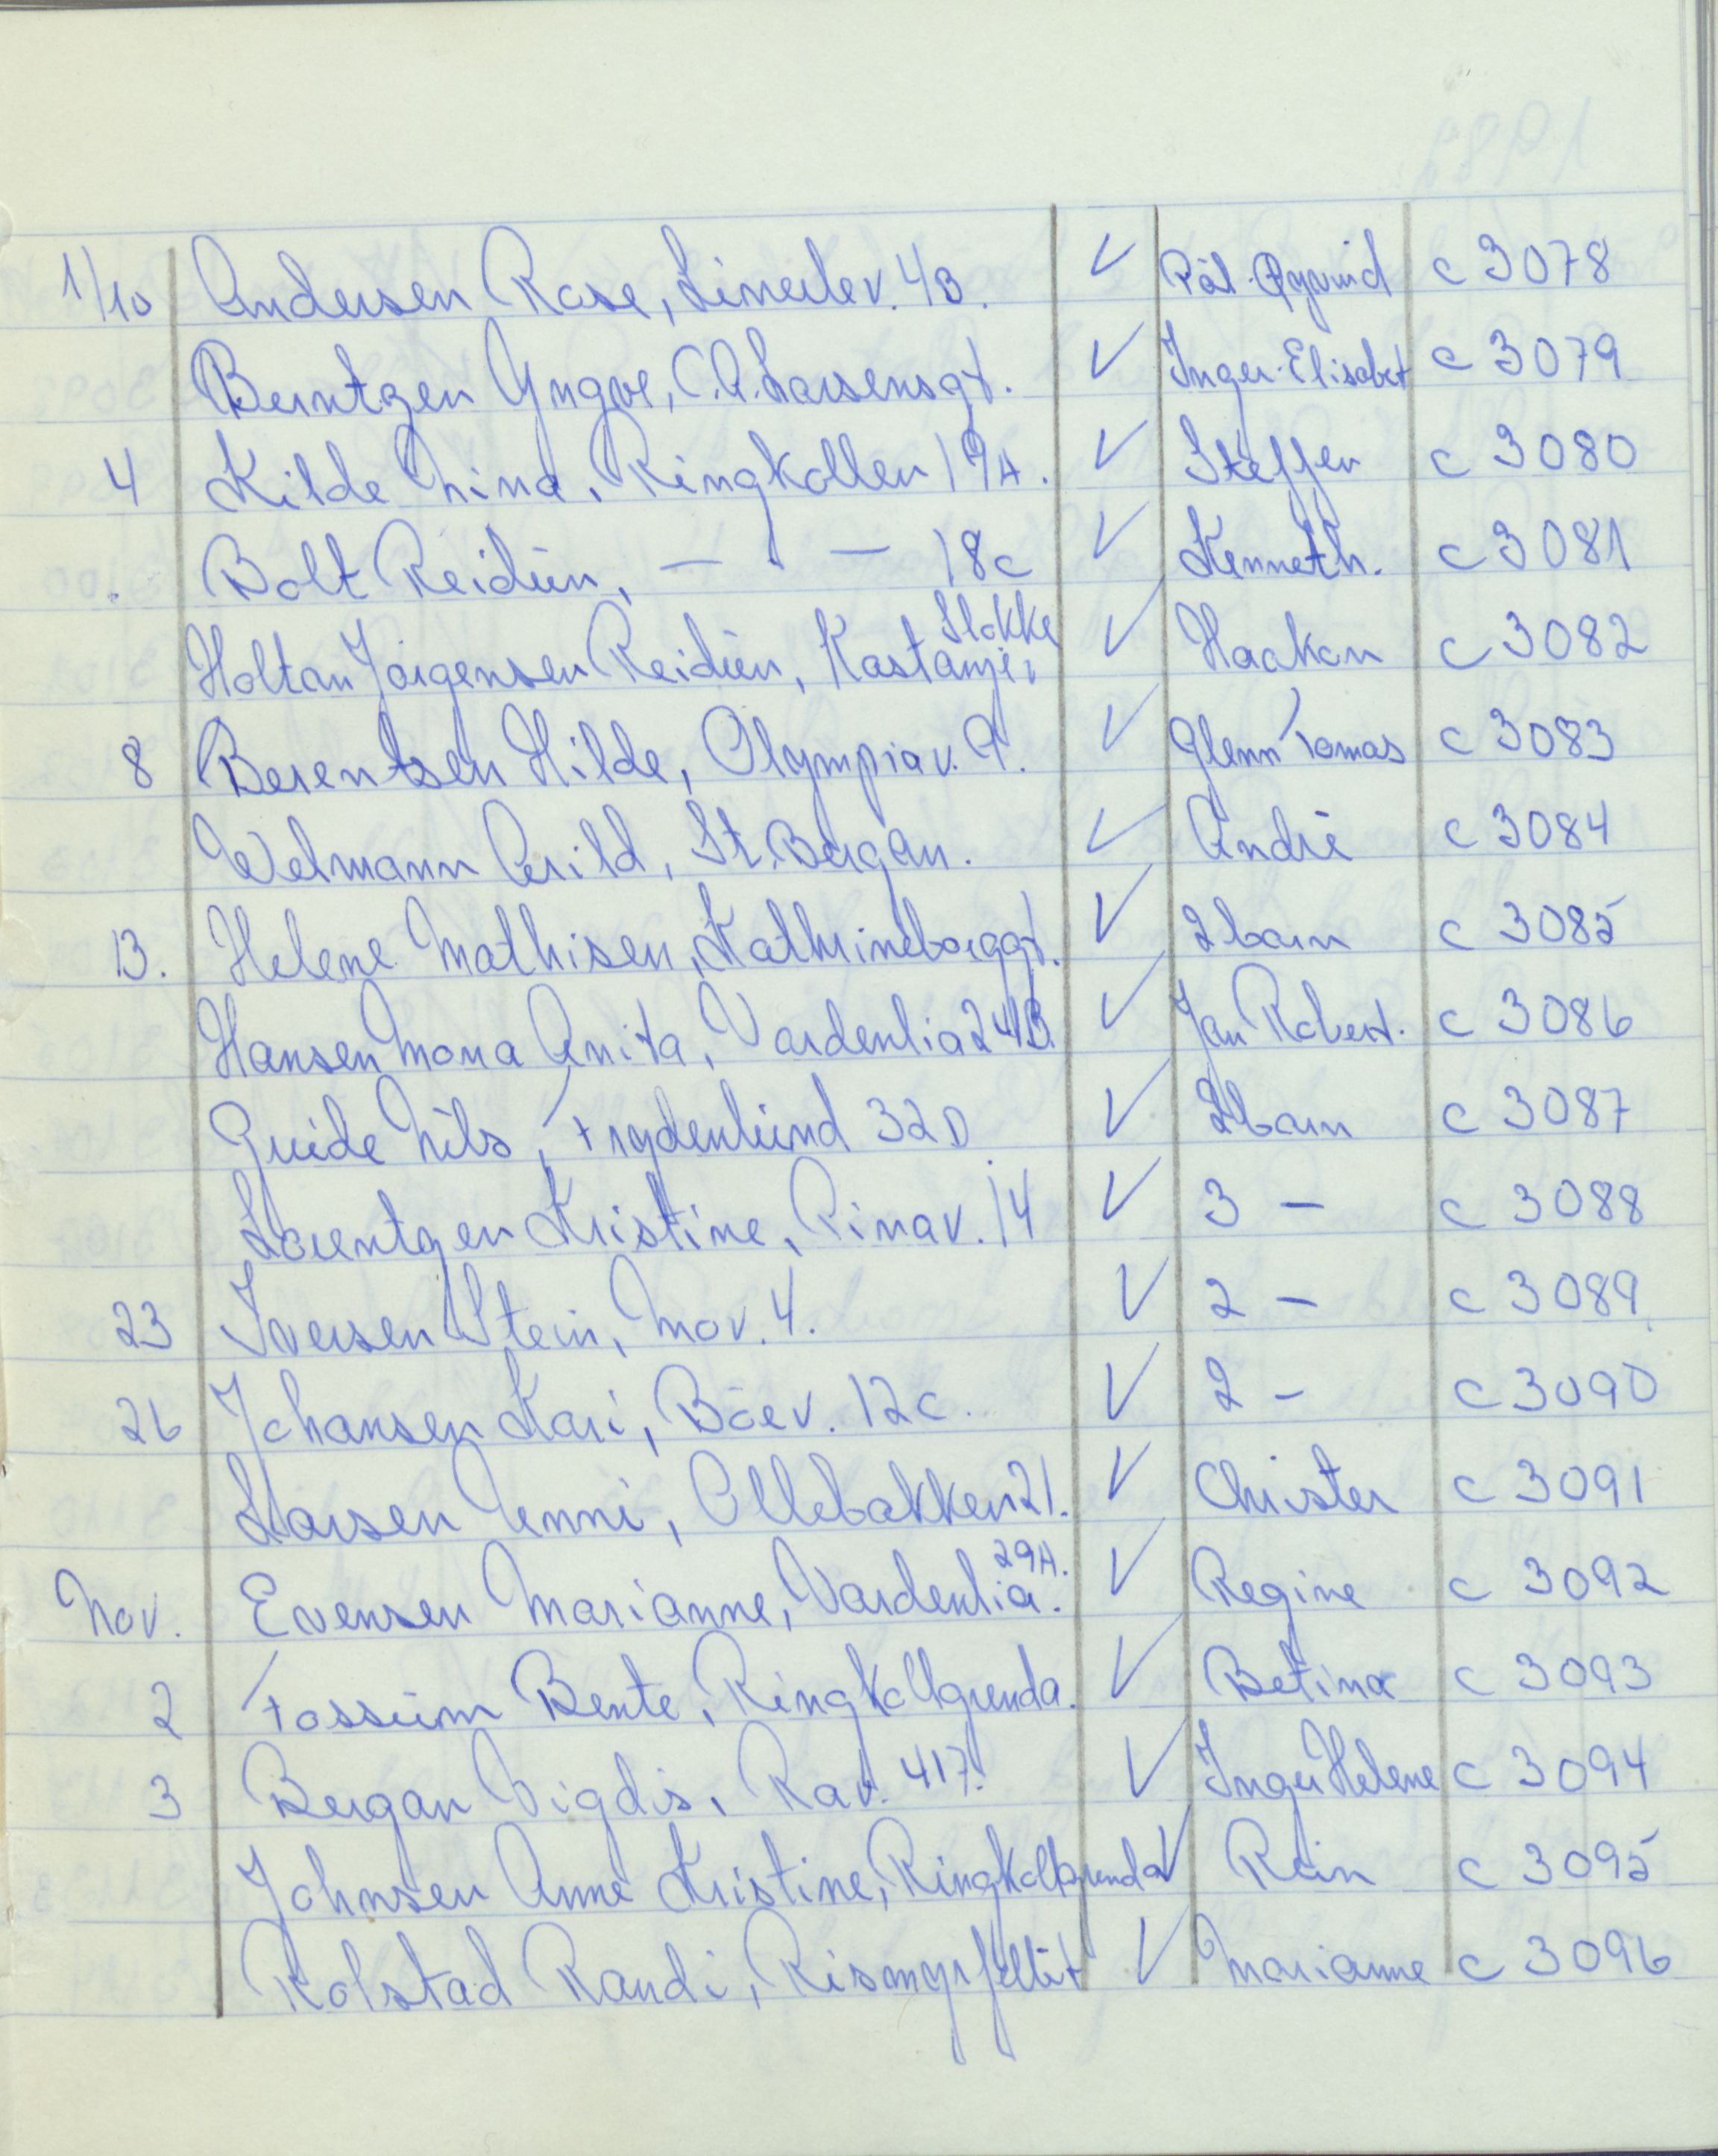 1/10 Andersen Rose, Linerlev. 4B. ✓ Pål-Øyvind c 3078
Berntzen Yngve, C.A. Larsensgt. ✓ Inger-Elisabet c 3079
4 Kilde Nina, Ringkollen 19A. ✓ Steffen c 3080
Bolt Reidun, — " — 18c ✓ Kenneth. c 3081
Holtan Jørgensen Reidun, Kastanjev. Slokke ✓ Haakon c 3082
8 Berentsen Hilde, Olympiav. 9. ✓ Glenn Tomas c 3083
Welmann Arild, St. Bergan. ✓ André c 3084
13. Helene Mathisen, Kathrineborggt. ✓ 2 barn c 3085
Hansen Mona Anita, Vardenlia 24B. ✓ Jan Robert. c 3086
Guide Nils, Frydenlund 32D ✓ 2 barn c 3087
Lorentzen Kristine, Rinav. 14 ✓ 3 — c 3088
23 Iversen Stein, Mov. 4. ✓ 2 — c 3089
26 Johansen Kari, Böev. 12c. ✓ 2 — c 3090
Larsen Unni, Ollebakken 21. ✓ Christer c 3091
Nov. Evensen Marianne, Vardenlia. 29A. ✓ Regine c 3092
2 Fossum Bente, Ringkollgrenda. ✓ Betina c 3093
3 Bergan Vigdis, Rav. 417. ✓ Inger Helene c 3094
Johnsen Anne Kristine, Ringkollgrenda ✓ Rein c 3095
Rolstad Randi, Rismyrfeltet ✓ Marianne c 3096